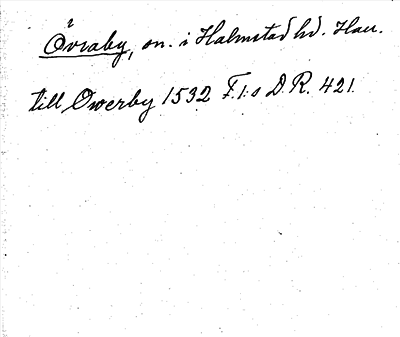 Övraby, sn. i Halmstad hd. Hall.
till Owerby 1532 F.1:s D.R. 421